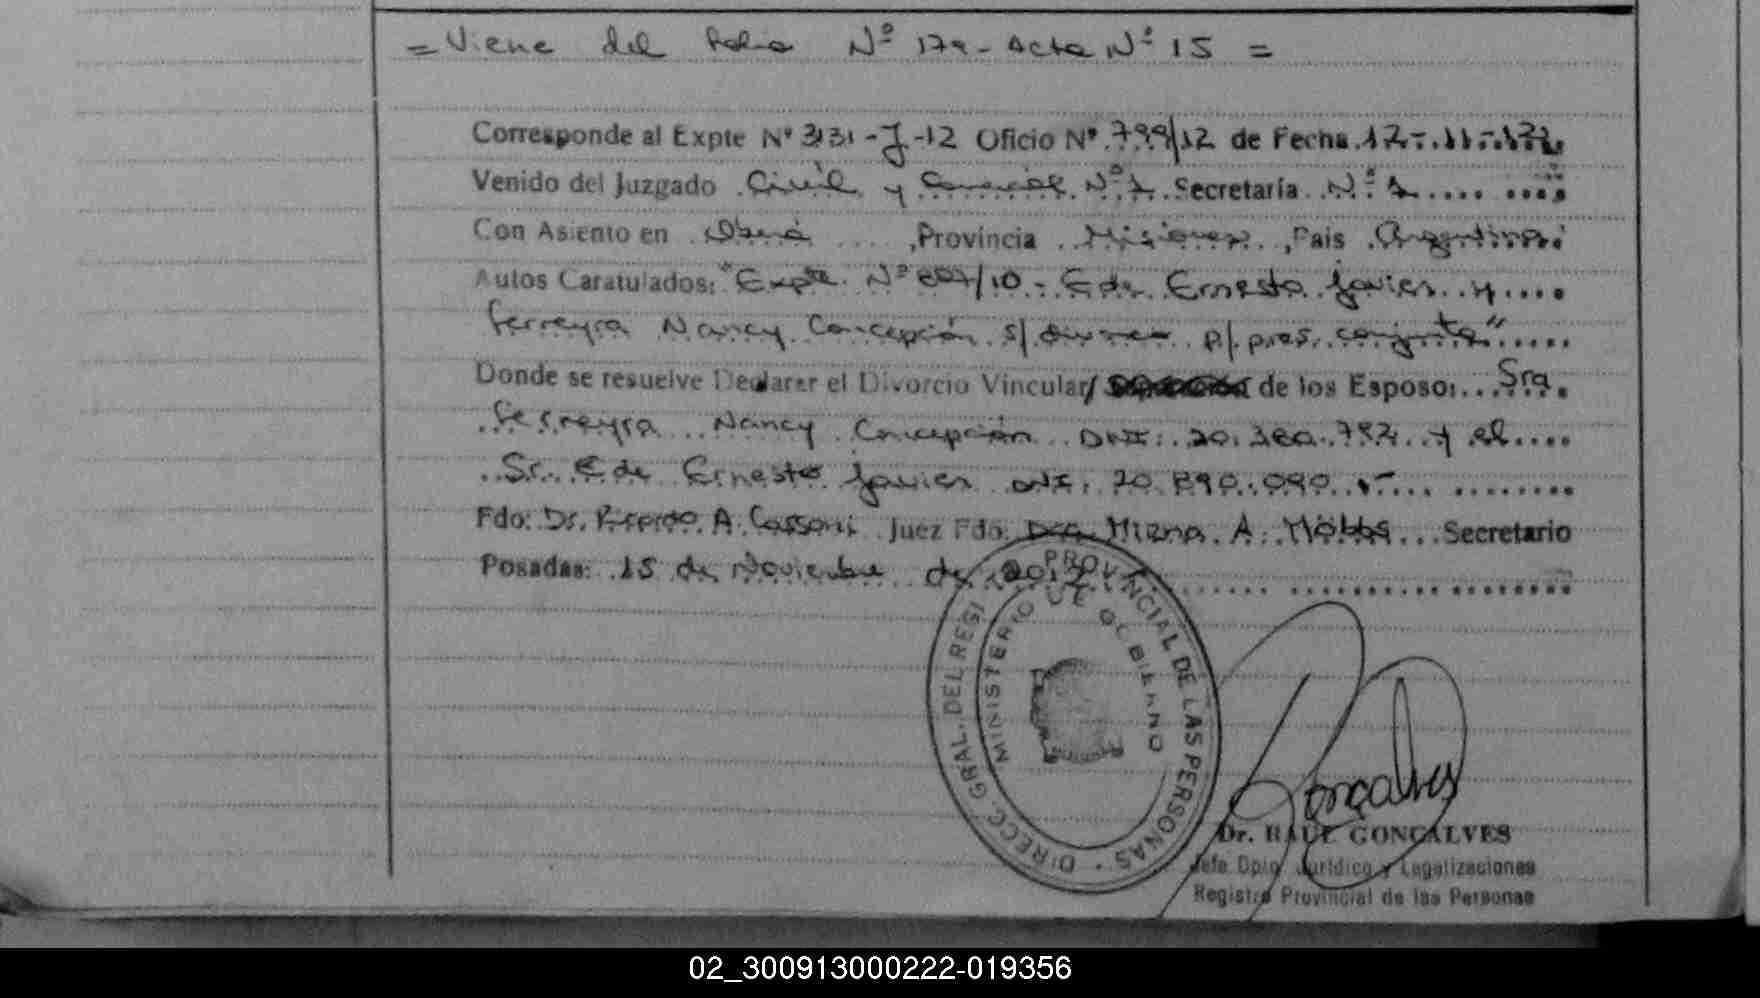 = Viene del folio Nº 179 - Acta Nº 15 =
Corresponde al Expte Nº 3131-J-12 Oficio Nº 799/12 de Fecha 12-11-12
Venido del Juzgado Civil y Comercial Nº 1 Secretaría Nº 1
Con Asiento en Oberá, Provincia Misiones, Pais Argentina
Autos Caratulados: "Expte Nº 807/10 - Ede Ernesto Javier y
Ferreyra Nancy Concepción s/ divorcio p/ pres. conjunta"
Donde se resuelve Declarar el Divorcio Vincular/ de los Esposos Sra.
Ferreyra Nancy Concepción DNI: 20.380.792 y el
Sr. Ede Ernesto Javier DNI: 20.890.090 -
Fdo: Dr. A. Cassoni Juez Fdo: Dra. Mirna A. Möbbs Secretario
Posadas: 15 de Noviembre de 2012
DIRECC. GRAL. DEL REGI PROVINCIAL DE LAS PERSONAS
MINISTERIO DE GOBIERNO
Gonçalves
Dr. RAUL GONCALVES
Jefe Dpto. Jurídico y Legalizaciones
Registro Provincial de las Personas
02_300913000222-019356